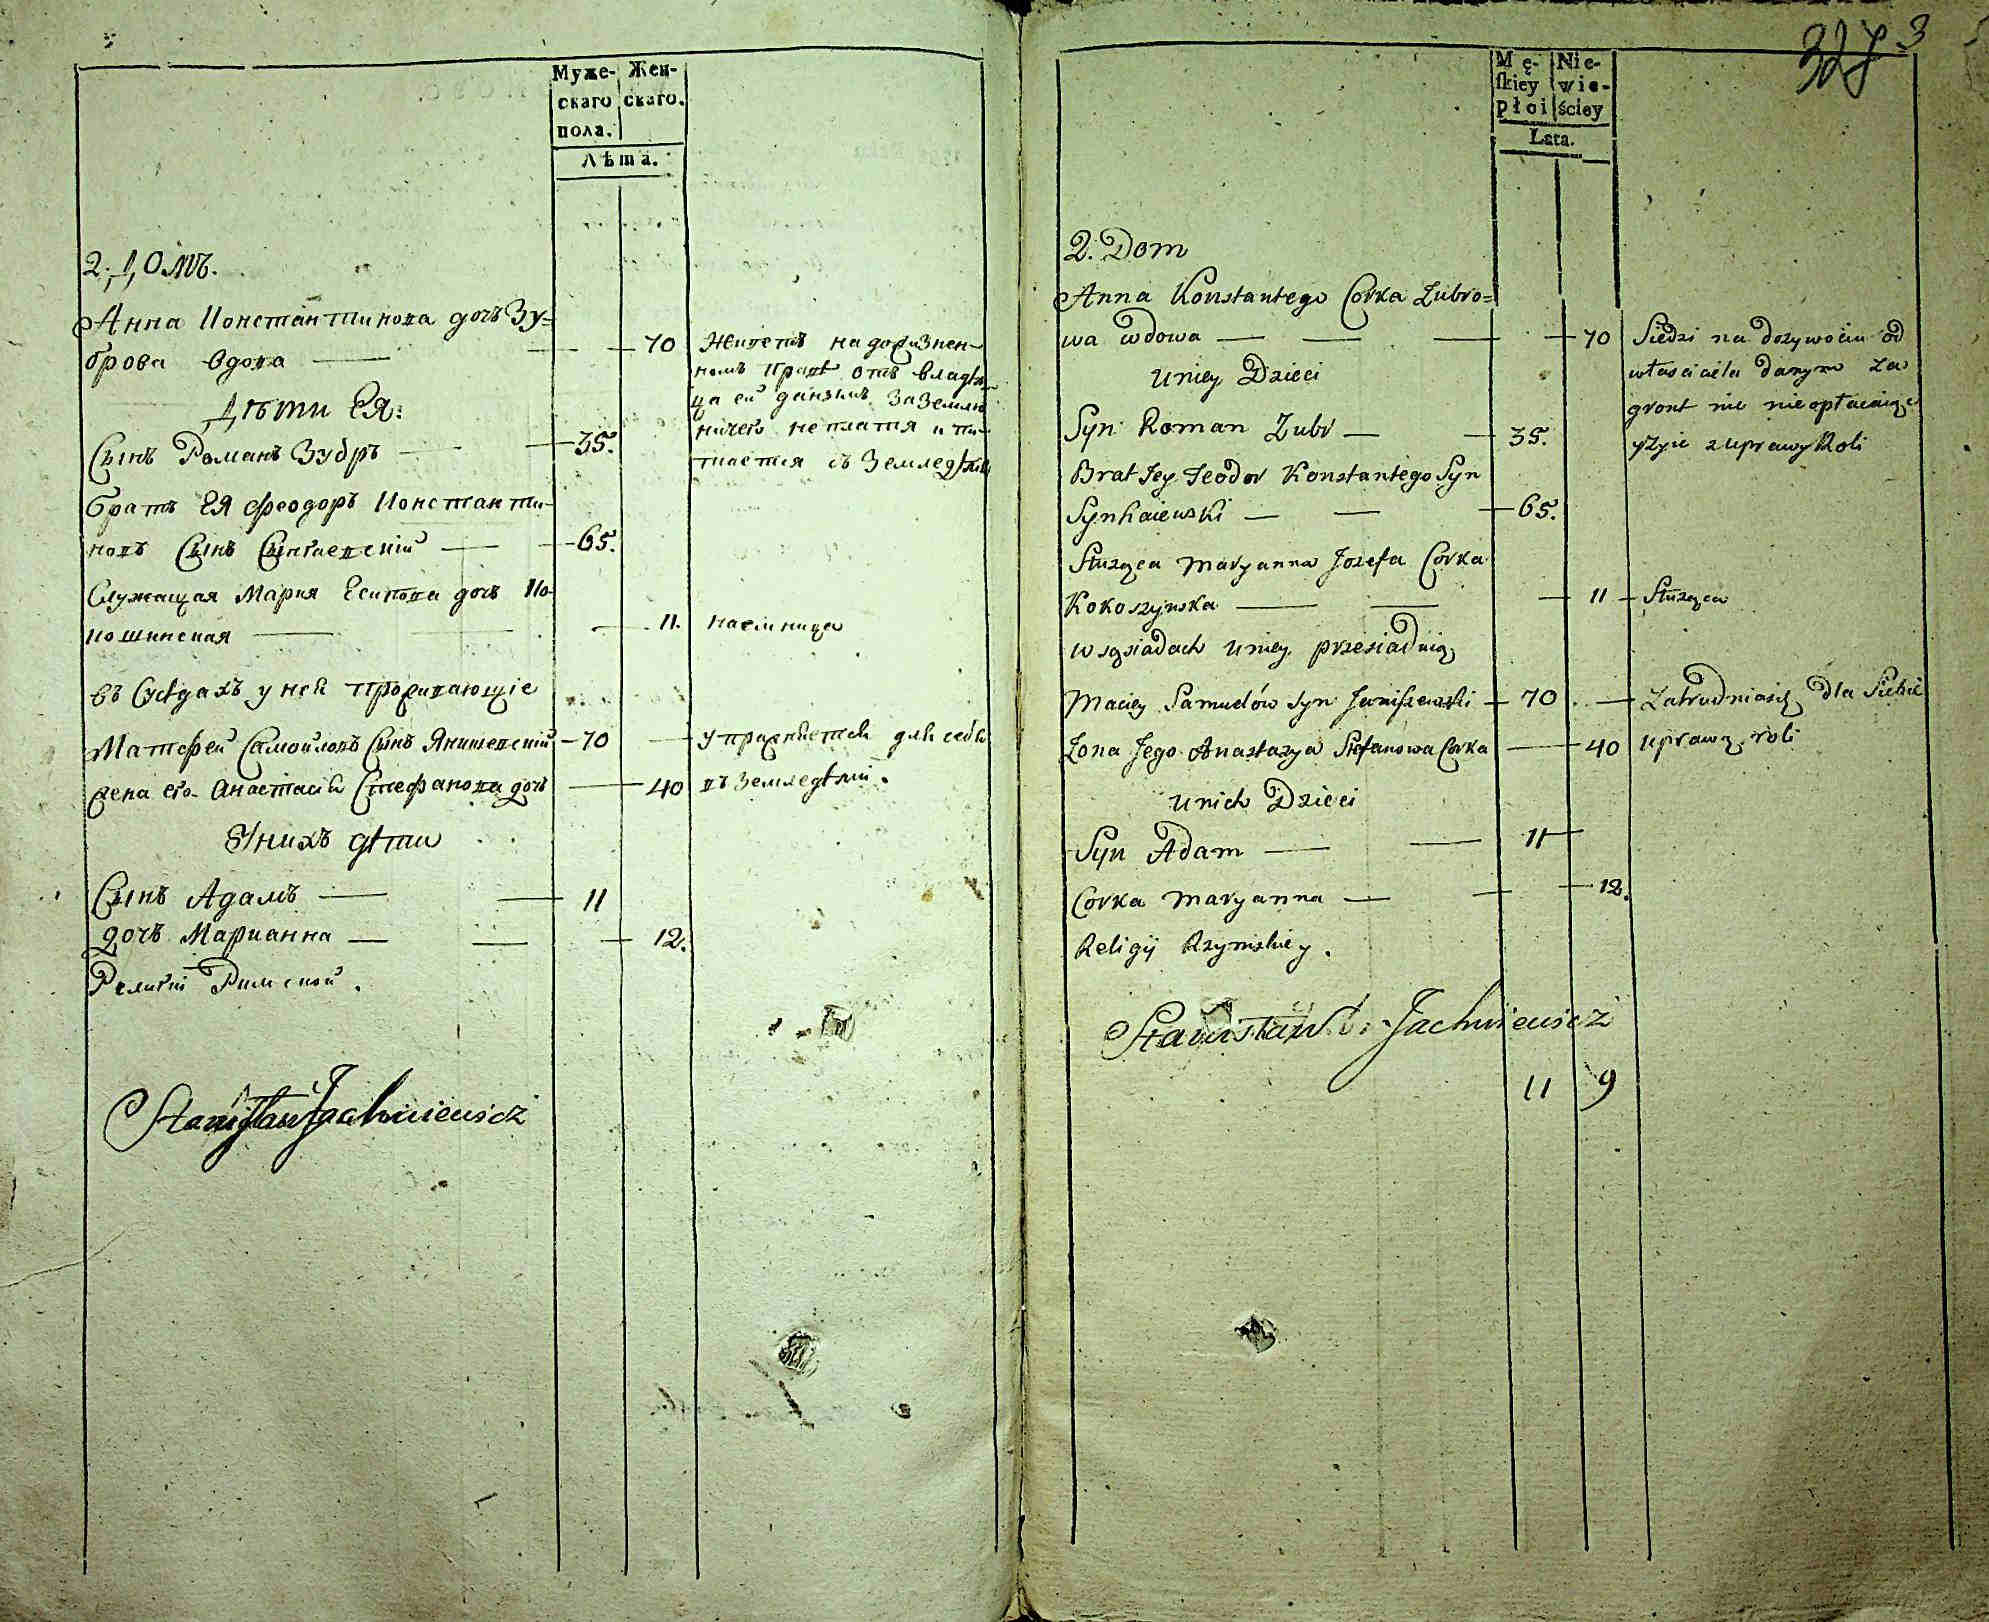 Муже- Жен-
скаго скаго.
пола.
Лѣта.
2. Домъ.
Анна Константинова дочь Зу=
брова вдова — 70
Живетъ на дожизнен-
номъ правѣ отъ владѣль-
ца ей данномъ за землю
ничего не платя и пи-
тается съ земледѣлія
Дѣти Ея:
Сынъ Романъ Зубръ — 35.
братъ Ея Феодоръ Константи-
новъ Сынъ Сынгаевскій — 65.
Служащая Мария Есипова дочь Ко-
кошинская — 11. наемница
въ Сусѣдахъ у ней проживающіе
Матфей Самойловъ Сынъ Янишевскій — 70 — упражняется для себя
жена его Анастасія Стефанова дочь — 40 въ земледѣліи.
У нихъ дѣти
Сынъ Адамъ — 11
дочь Марианна — 12.
Религіи Римской.
Stanisław Jachniewicz
327 3
Mę- Nie-
skiey wie-
płci ściey
Lata.
2. Dom
Anna Konstantego Corka Zubro=
wa wdowa — 70
Siedzi na dozywociu od
własciciela danym za
gront nic nie opłacaiąc
yzyie zuprawy Roli
Uniey Dzieci
Syn Roman Zubr — 35.
Brat Jey Teodor Konstantego Syn
Synhaiewski — 65.
Służąca Maryanna Jozefa Corka
Kokoszynska — 11 — Służąca
w sąsiadach Uniey przesiaduią
Maciey Samuelów Syn Janiszewski — 70 — Zatrudniaią dla Siebie
Zona Jego Anastazya Stefanowa Corka — 40 uprawą roli
Unich Dzieci
Syn Adam — 11
Corka Maryanna — 12.
Religij Rzymskiey.
Stanisław Jachniewicz
11 9